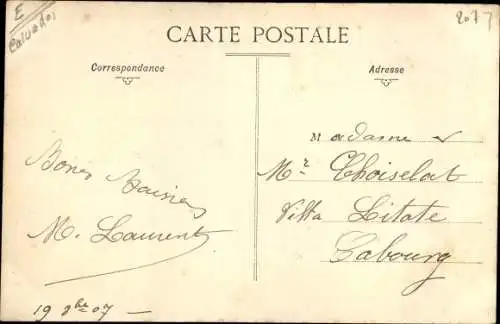 E
Calvados
2077
CARTE POSTALE
Correspondance
Adresse
Madame &
Mr Choiselat
Villa Litate
Cabourg
Bons Baisers
M. Laurent
19 8bre 07